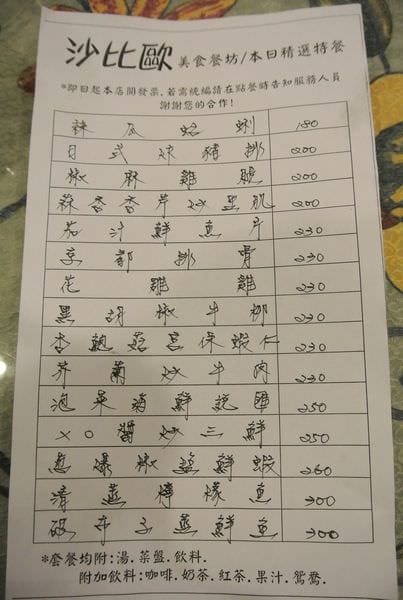 沙比歐 美食餐坊/本日精選特餐
*即日起本店開發票.若需統編請在點餐時告知服務人員
謝謝您的合作!
辣瓜蛤蜊 180
日式炸豬排 200
椒麻雞腿 200
蒜香香芹炒里肌 200
茄汁鮮魚片 230
京都排骨 230
花雕雞 230
黑胡椒牛柳 230
杏鮑菇宮保蝦仁 230
芥蘭炒牛肉 230
泡菜海鮮 250
XO醬炒三鮮 250
蔥爆椒鹽鮮蝦 260
清蒸檸檬魚 300
破布子蒸鮮魚 300
*套餐均附:湯.菜盤.飲料.
附加飲料:咖啡.奶茶.紅茶.果汁.鴛鴦.